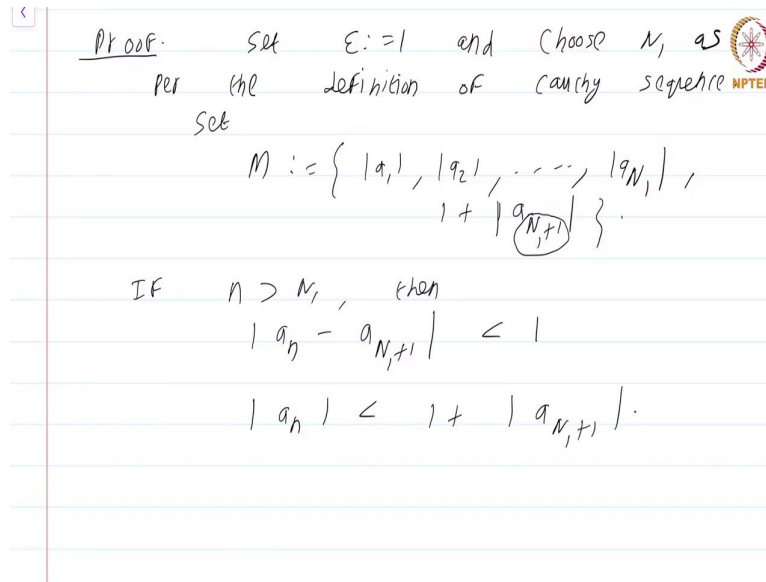 Proof. Set ε := 1 and choose N₁ as
per the definition of cauchy sequence
NPTEL
Set
M := { |a₁|, |a₂|, ....., |a_{N₁}|,
1 + |a_{N₁+1}| }.
IF n > N₁, then
|aₙ - a_{N₁+1}| < 1
|aₙ| < 1 + |a_{N₁+1}|.